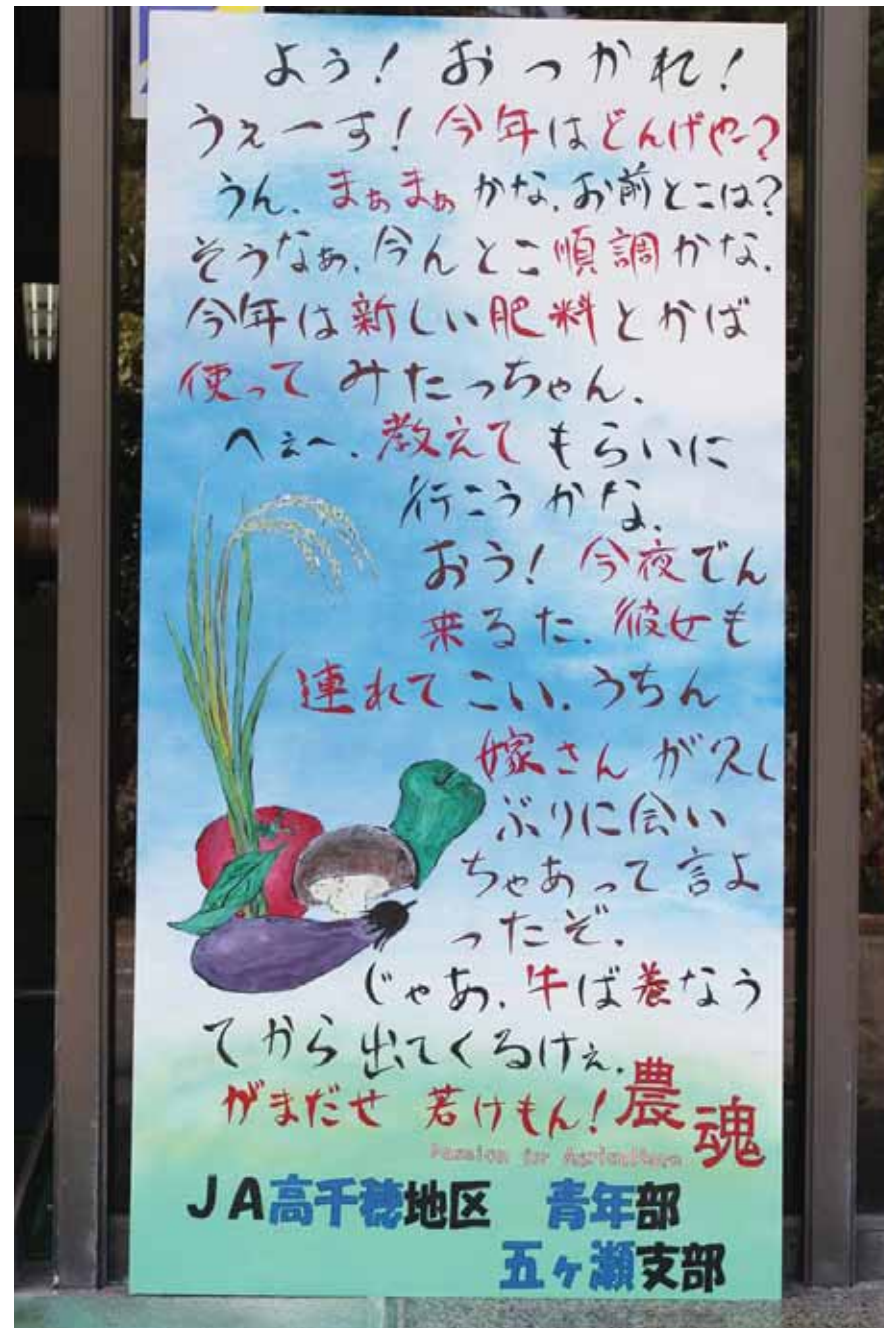 よう！おつかれ！
うぇーす！今年はどんげや～？
うん、まぁまぁかな。お前とこは？
そうなぁ、今んとこ順調かな。
今年は新しい肥料とかば
使ってみたっちゃん。
へぇ～、教えてもらいに
行こうかな。
おう！今夜でん
来るた。彼女も
連れてこい。うちん
嫁さんが久し
ぶりに会い
ちゃあって言よ
ったぞ。
じゃあ、牛ば養なう
てから出てくるけぇ。
がまだせ 若けもん！農魂
Passion for Agriculture
JA高千穂地区 青年部
五ヶ瀬支部